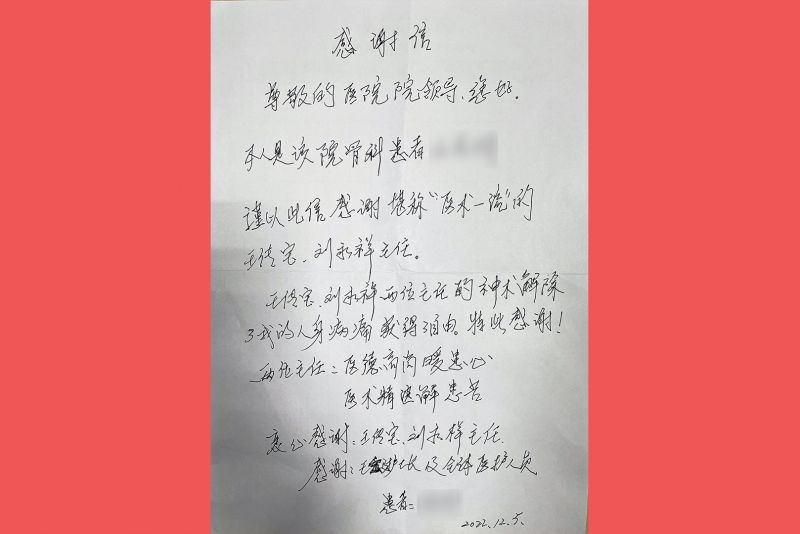 感谢信
尊敬的医院院领导、您好。
本人是该院骨科患者
谨以此信感谢堪称“医术一流”的
王传宝、刘永祥主任。
王传宝、刘永祥两位主任的神术解除
了我的人身病痛获得自由。特此感谢！
两位主任：医德高尚暖患心
医术精湛解患苦
衷心感谢：王传宝、刘永祥主任、
感谢：王护士长及全体医护人员
患者：
2022.12.5.